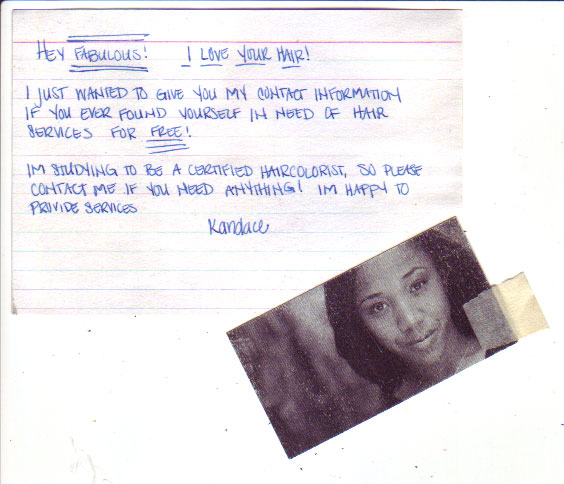 HEY FABULOUS! I LOVE YOUR HAIR!
I JUST WANTED TO GIVE YOU MY CONTACT INFORMATION
IF YOU EVER FOUND YOURSELF IN NEED OF HAIR
SERVICES FOR FREE!
IM STUDYING TO BE A CERTIFIED HAIRCOLORIST, SO PLEASE
CONTACT ME IF YOU NEED ANYTHING! IM HAPPY TO
PRIVIDE SERVICES
Kandace